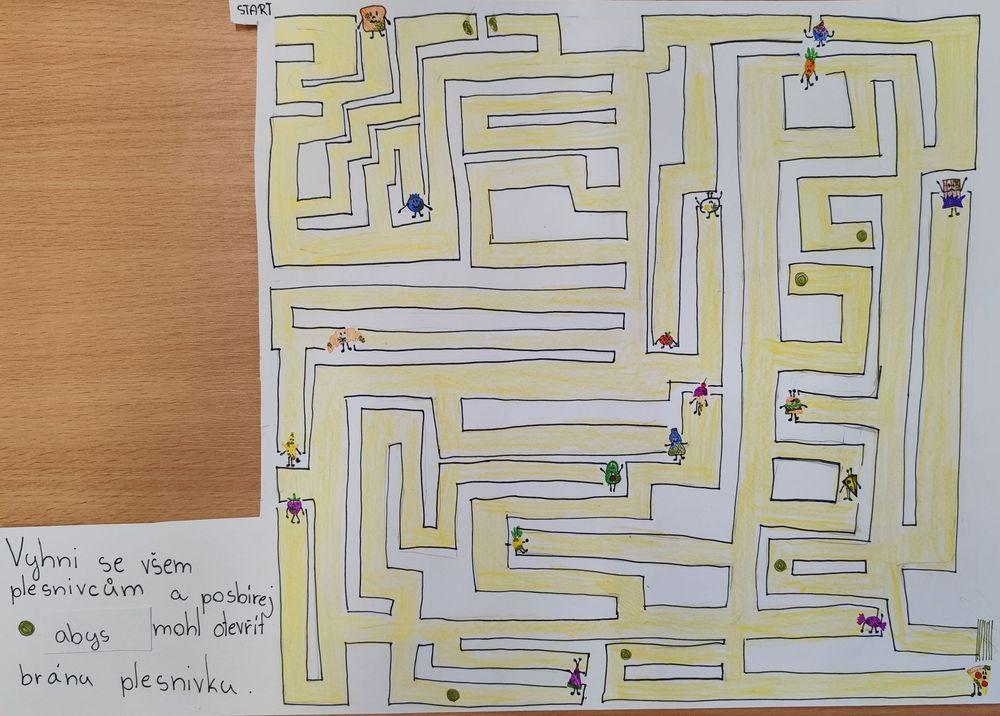 START
Vyhni se všem
plesnivcům a posbírej
abys mohl otevřít
bránu plesnivku.